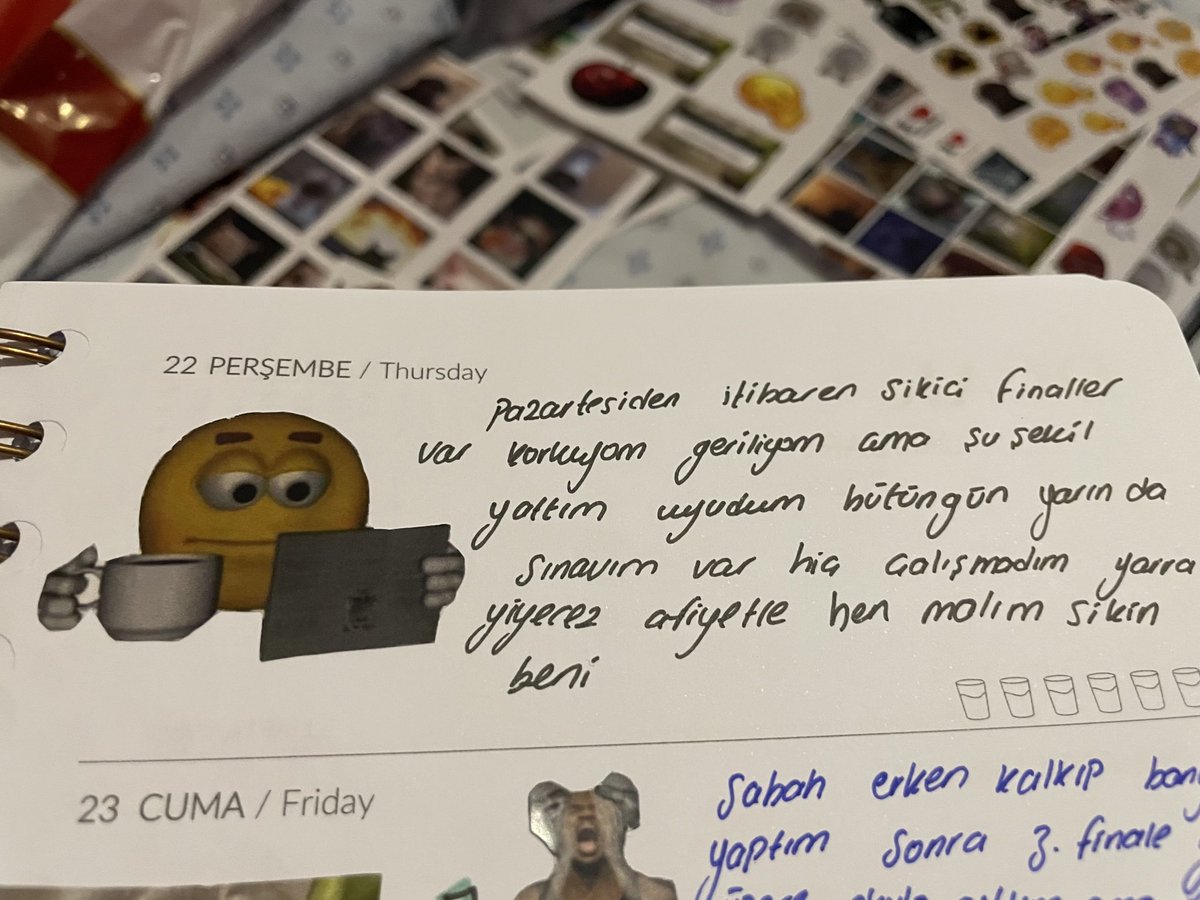 22 PERŞEMBE / Thursday
pazartesiden itibaren sikici finaller
var korkuyom geriliyom ama şu şekil
yattım uyudum bütüngün yarın da
sınavım var hiç çalışmadım yarra
yiyerez afiyetle hen molım sikin
beni
23 CUMA / Friday
Sabah erken kalkıp
yaptım sonra 3. finale